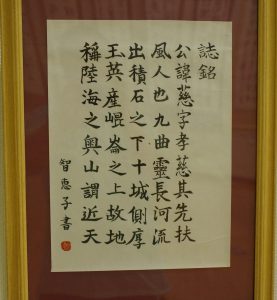 誌銘
公諱慈字孝慈其先扶
風人也九曲靈長河流
出積石之下十城側厚
玉英產崐崙之上故地
稱陸海之輿山謂近天
智惠子書